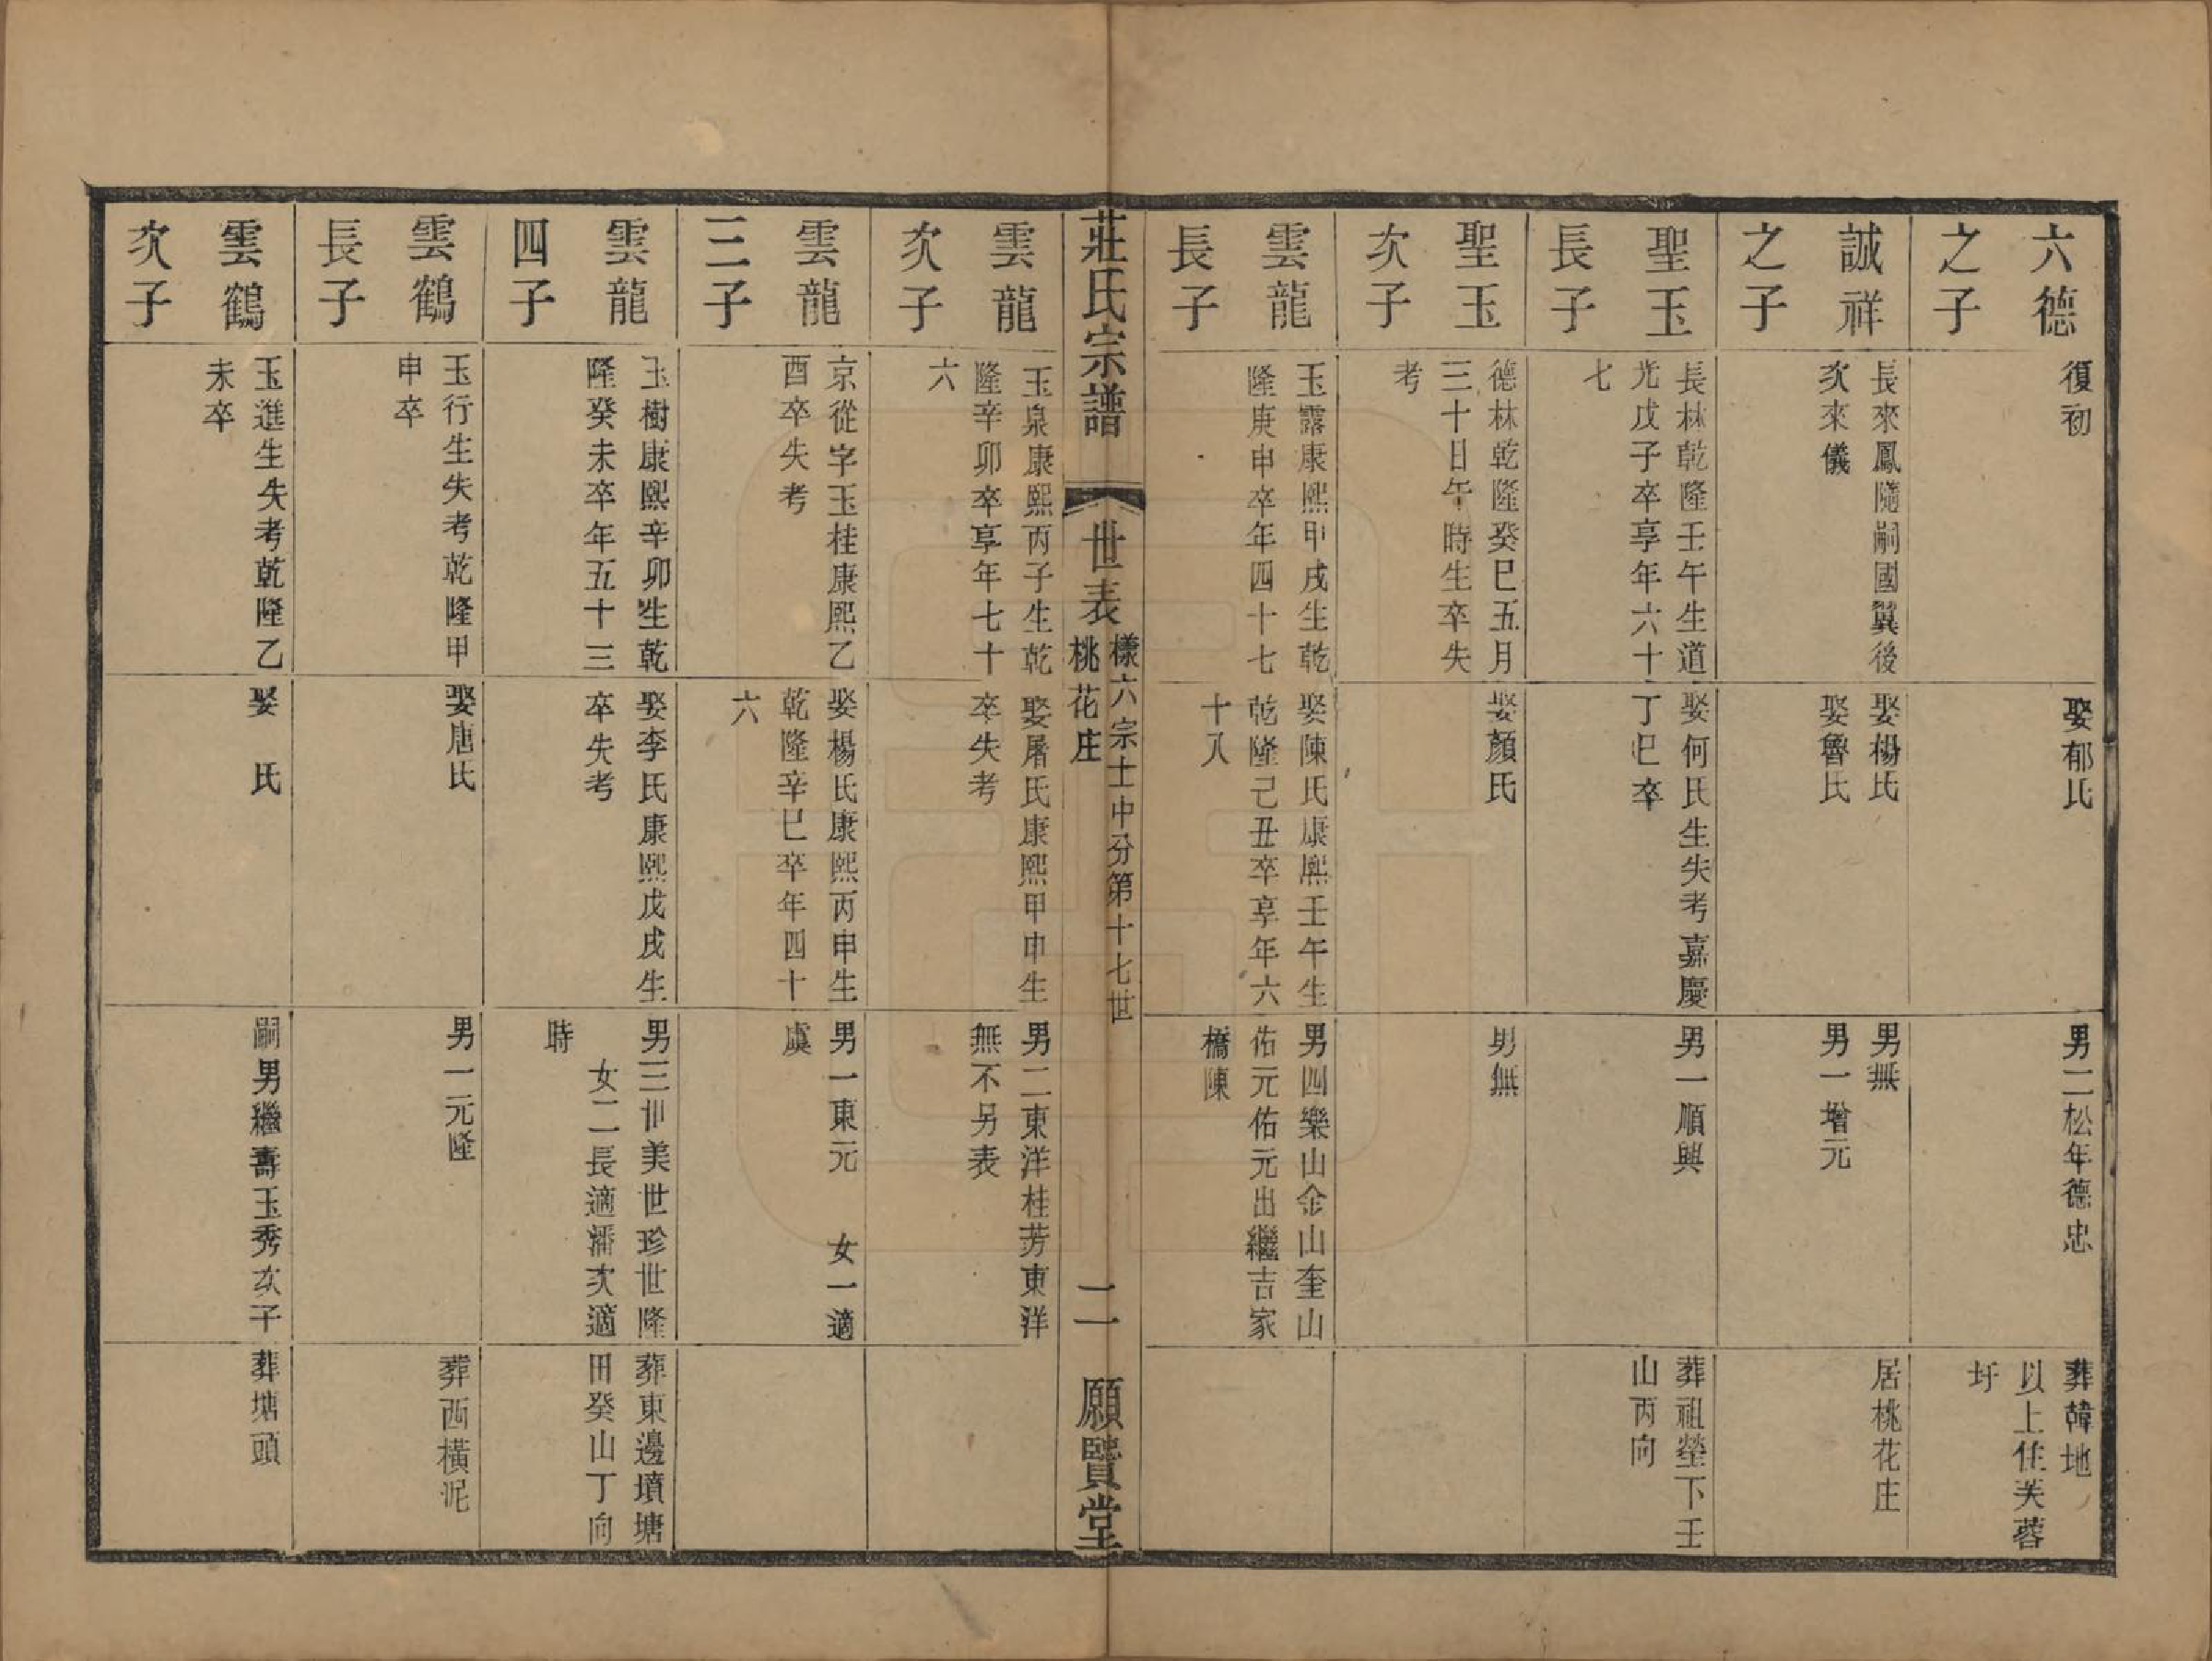 六德
之子
復初
娶郁氏
男二松年德忠
葬韓地
以上住芙蓉
圩
誠祥
之子
長來鳳隨嗣國翼後
次來儀
娶楊氏
娶魯氏
男無
男一增元
居桃花庄
聖玉
長子
長林乾隆壬午生道
光戊子卒享年六十
七
娶何氏生失考嘉慶
丁巳卒
男一順興
葬祖塋下壬
山丙向
聖玉
次子
德林乾隆癸巳五月
三十日午時生卒失
考
娶顏氏
男無
雲龍
長子
玉露康熙甲戌生乾
隆庚申卒年四十七
娶陳氏康熙壬午生
乾隆己丑卒享年六
十八
男四樂山金山奎山
佑元佑元出繼吉家
橋陳
莊氏宗譜
世表
樣六宗士中分第十七世
桃花庄
二
願賢堂
雲龍
次子
玉泉康熙丙子生乾
隆辛卯卒享年七十
六
娶屠氏康熙甲申生
卒失考
男二東洋桂芳東洋
無不另表
雲龍
三子
京從字玉桂康熙乙
酉卒失考
娶楊氏康熙丙申生
乾隆辛巳卒年四十
六
男一東元 女一適
虞
雲龍
四子
玉樹康熙辛卯生乾
隆癸未卒年五十三
娶李氏康熙戊戌生
卒失考
男三世美世珍世隆
女二長適潘次適
時
葬東邊墳塘
田癸山丁向
雲鶴
長子
玉行生失考乾隆甲
申卒
娶唐氏
男一元隆
葬西橫泥
雲鶴
次子
玉進生失考乾隆乙
未卒
娶 氏
嗣男繼壽玉秀次子
葬塘頭